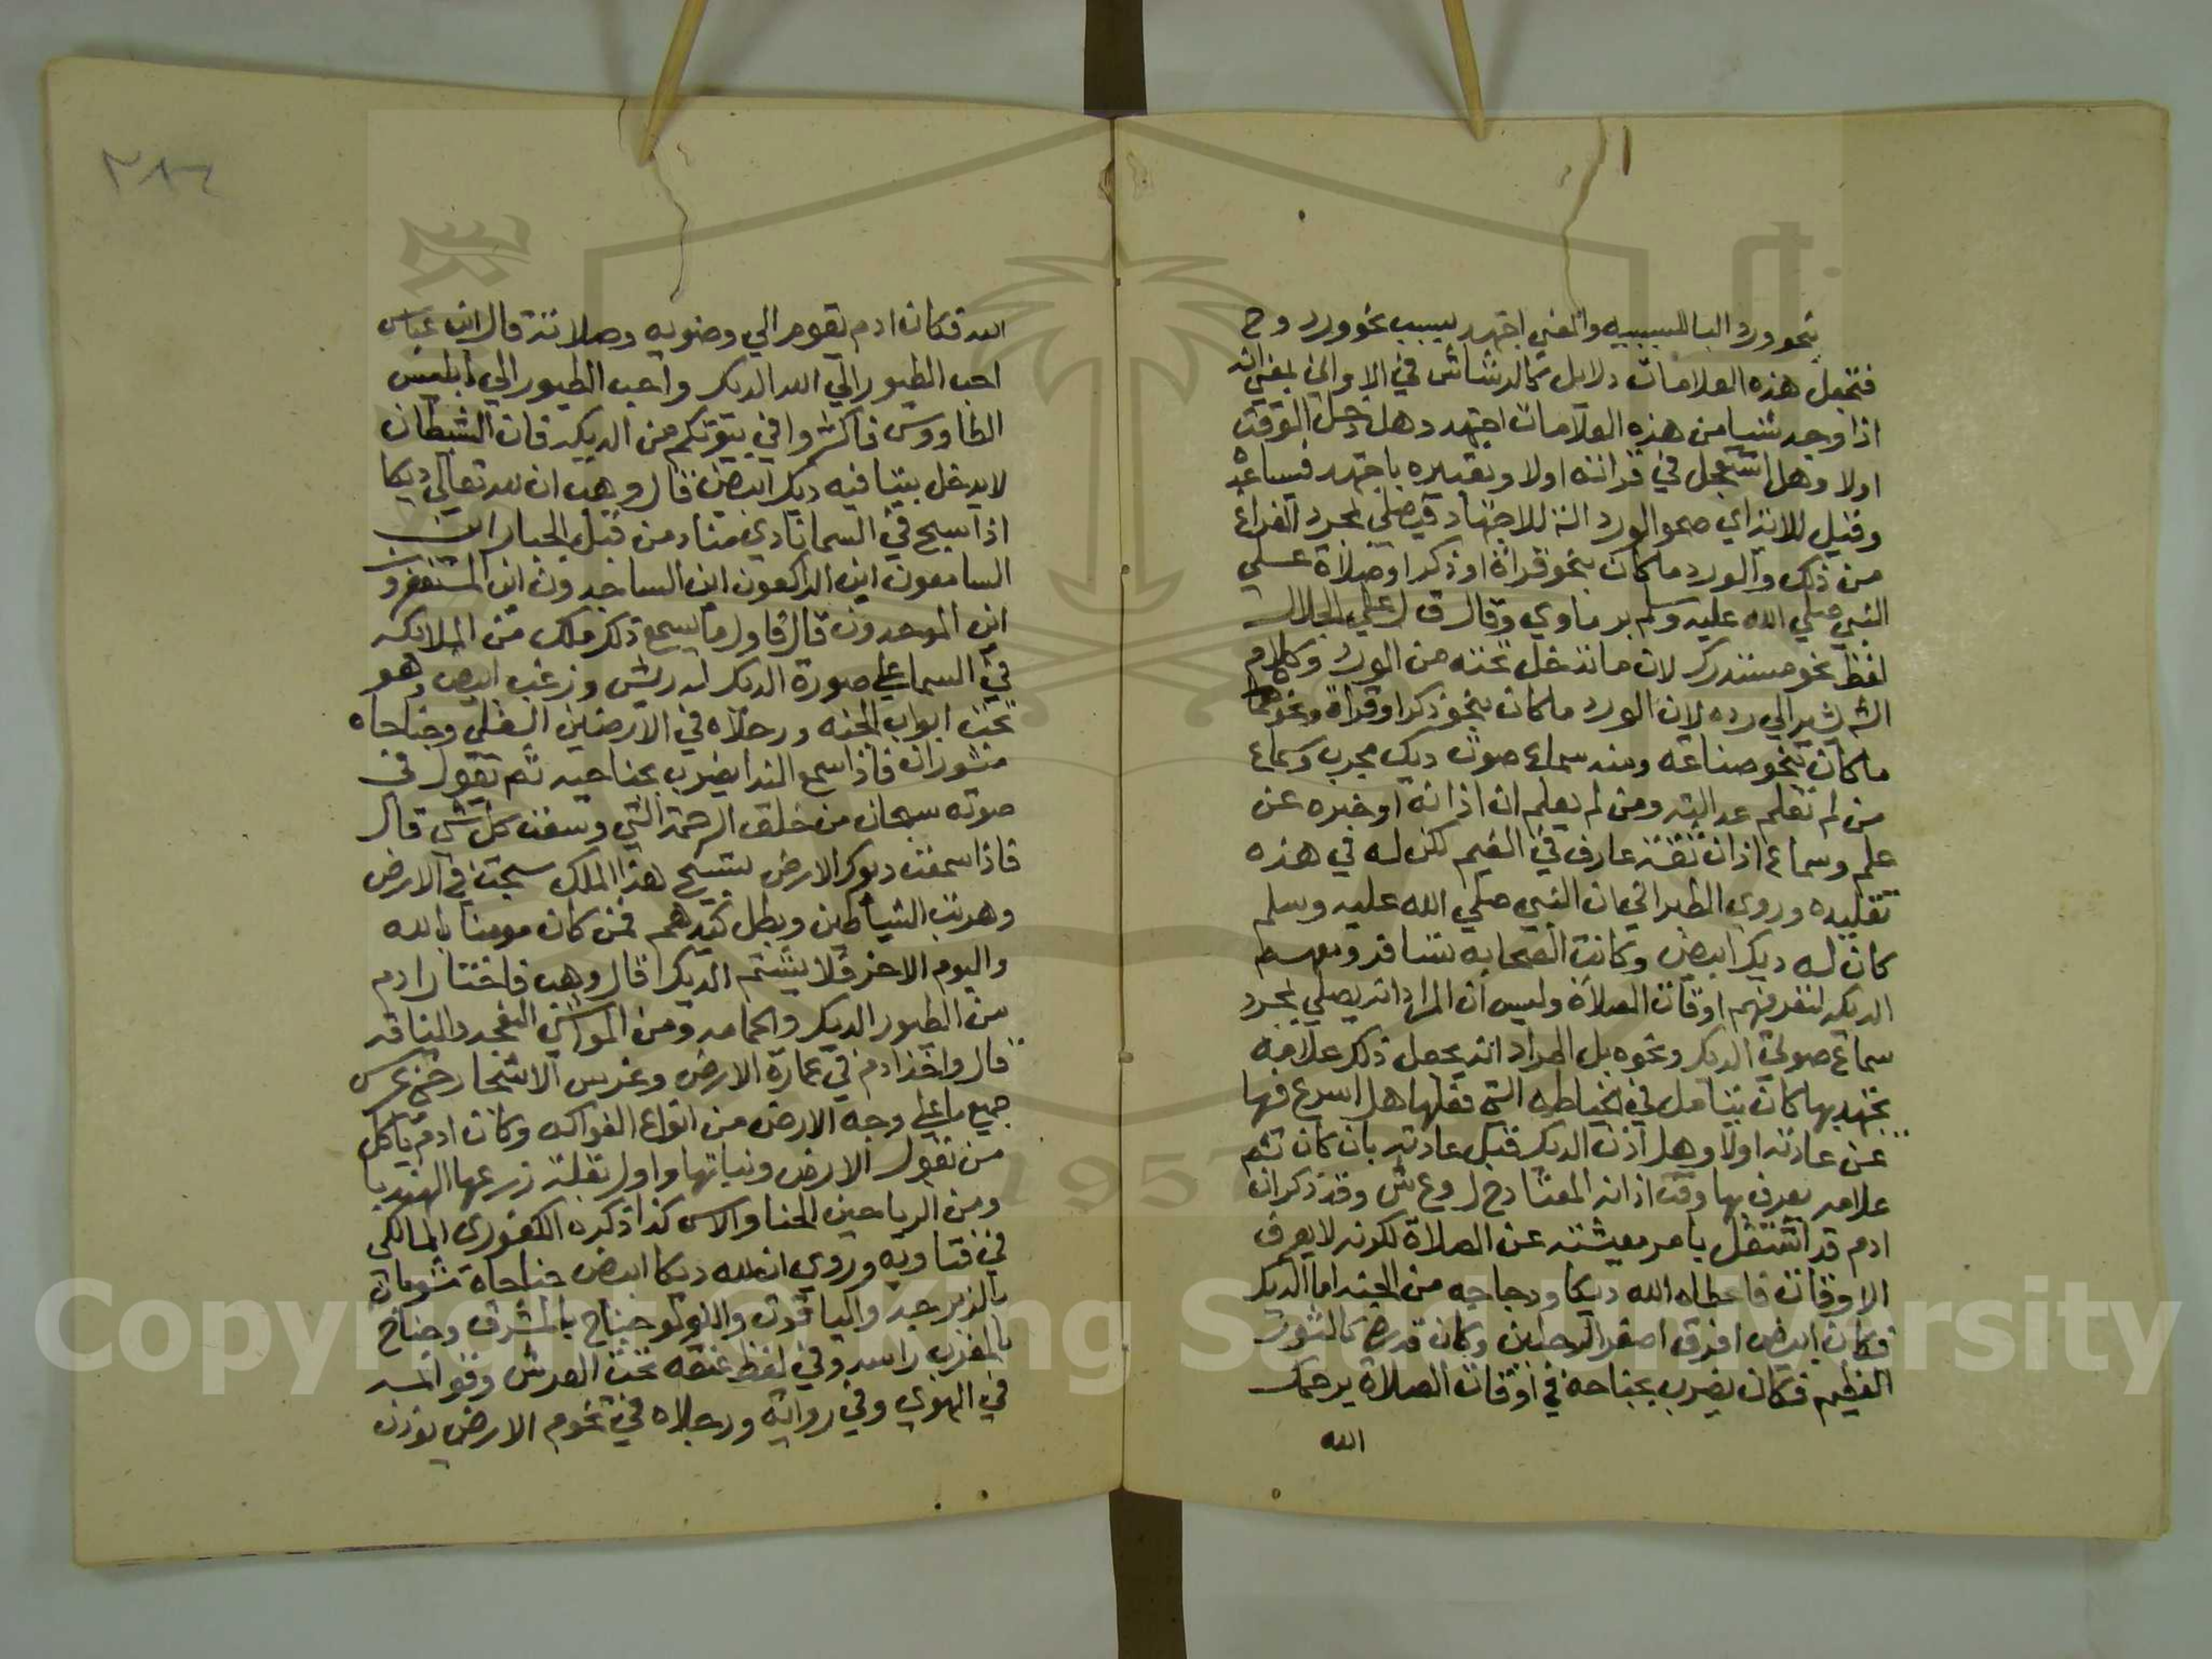 بنحو ورد الباللسببيه والمعني اجتهد بسبب نحو ورد وح
فتجعل هذه العلامات دلايل كالرشاش في الاواني بمعني انه
اذا وجد شيا من هذه العلامات اجتهد وهل دخل الوقت
اولا وهل استعجل في قراته اولا ونعتبره باجتهد فيساعده
وقيل للانراي صحو الورد الة للاجتهاد فيصلي بمجرد الفراغ
من ذلك والورد ما كان بنحو قراة او ذكر او صلاة علي
النبي صلي الله عليه وسلم برماوي وقال ق ل علي الجلال
لفظ نحو مستدرك لان ما تدخل تحته من الورد وكلام
الش يشير الي رده لان الورد ما كان بنحو ذكر او قراة ونحوهما
ما كان بنحو صناعه ومنه سماع صوت ديك مجرب وسماع
من لم تعلم عدالته ومن لم يعلم ان اذانه او خبره عن
علم وسماع اذان ثقة عارف في الغيم لكن له في هذه
تقليده وروي الطبراني ان النبي صلي الله عليه وسلم
كان له ديك ابيض وكانت الصحابه تسافر ومعهم
الديكه لتعرفهم اوقات الصلاة وليس ان المراد انه يصلي بمجرد
سماع صوت الديك ونحوه بل المراد انه يجعل ذلك علامه
يجتهد بها كان يتامل في الخياطه التي فعلها هل اسرع فيها
عن عادته اولا وهل اذن الديك قبل عادته بان كان ثم
علامه يعرف بها وقت اذانه المعتاد ح ل وع ش وقد ذكر ان
ادم قد اشتغل بامر معيشته عن الصلاة لكونه لا يعرف
الاوقات فاعطاه الله ديكا ودجاجه من الجنه اما الديك
فكان ابيض افرق اصفر الرجلين وكان قدره كالثور
العظيم فكان يضرب بجناحه في اوقات الصلاة يرحمك
الله
٢٨٤
الله فكان ادم يقوم الي وضويه وصلاته قال ابن عباس
احب الطيور الي الله الديك واحب الطيور الي ابليس
الطاووس فاكثروا في بيوتكم من الديكه فان الشيطان
لا يدخل بيتا فيه ديك ابيض قال وهب ان لله تعالي ديكا
اذا سبح في السما نادي مناد من قبل الجبار اين
السامعون اين الراكعون اين الساجدون اين المستغفرون
اين الموحدون قال فاول ما يسمع ذلك ملك من الملايكه
في السما علي صورة الديك له ريش وزغب ابيض وهو
تحت ابواب الجنه ورجلاه في الارضين السفلي وجناحاه
منشوران فاذا سمع الندا يضرب بجناحيه ثم يقول في
صوته سبحان من خلق الرحمة التي وسعت كل شي قال
فاذا سمعت ديوك الارض تسبيح هذا الملك سبحت في الارض
وهربت الشياطين وبطل كيدهم فمن كان مومنا بالله
واليوم الاخر فلا يشتم الديك قال وهب فاختار ادم
من الطيور الديك والحمامه ومن المواشي النعجه والناقه
قال واخذ ادم في عمارة الارض وغرس الاشجار حتي غرس
جميع ما علي وجه الارض من انواع الفواكه وكان ادم ياكل
من بقول الارض ونباتها واول بقلة زرعها الهندبا
ومن الرياحين الحنا والاس كذا ذكره الكفوري المالكي
في فتاويه وروي ان لله ديكا ابيض جناحاه موشيان
بالزبرجد والياقوت واللولو جناح بالمشرق وجناح
بالمغرب راسه وفي لفظ عنقه تحت العرش وقوايمه
في الهوي وفي رواية ورجلاه في تخوم الارض يوذن
Copyright © King Saud University
1957